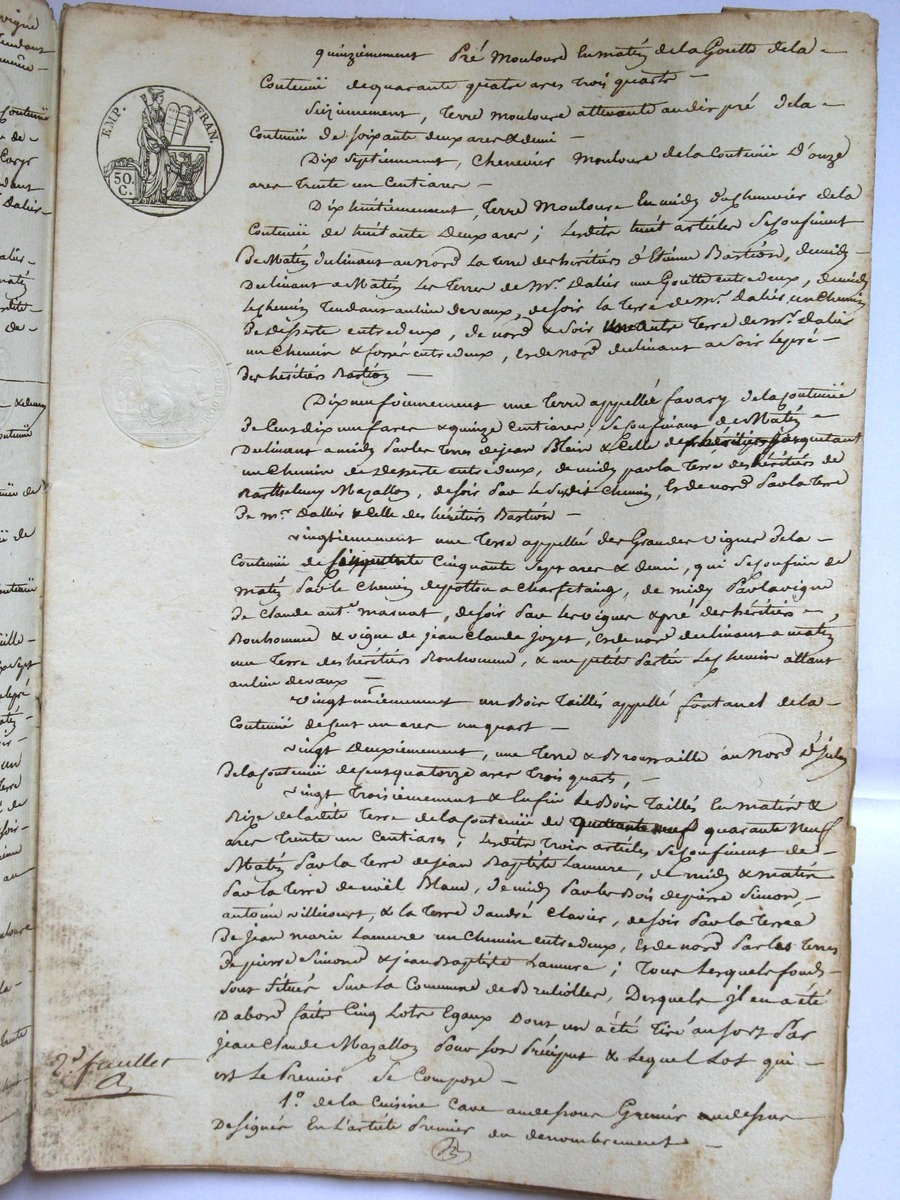 EMP. FRAN.
50. C.
quinziemement Pré Mouloure En matin de la Goutte de la
Contenüe de quarante quatre ares trois quarts
Seiziemement, Terre Mouloure attenante audit pré de la
Contenüe de soixante deux ares & demi
Dix Septiemement, Chenevier Mouloure de la Contenüe D'onze
ares Trente un Centiares
Dix huitiemement, Terre Mouloure En midy du Chenevier de la
Contenüe de huitante deux ares ; Lesdits huit articles Se Confinent
De Matin declinant au Nord La Terre des héritiers d'Etienne Bastion, de midy
Declinant a Matin Les Terres de Mr. Dalier une Goutte entre deux, de midy
Le Chemin Tendant au lieu de vaux, de soir la Terre de Mr. Dalier, un Chemin
De desserte entre deux, de nord & soir Terre de Mr. Dalier
un Chemin & fossé entre deux, & de nord declinant a soir le pré
des héritiers Bastion
Dix neufviemement une Terre appellée favary de la Contenüe
de Cent dix neuf ares & quinze Centiares, Se Confinant de Matin
Declinant a midy par les Terres de jean Blein & Celle de
un Chemin de desserte entre deux, de midy par la Terre des héritiers de
Barthelemy Mazallon, de soir par le Susdit Chemin, & de nord par la Terre
de Mr. Dallier & Celle des héritiers Bastion
vingtiemement une Terre appellée des Grandes vignes de la
Contenüe de Cinquante Sept ares & demi, qui Se Confine de
matin par le Chemin de pollon a Charfetaing, de midy Par la vigne
de Claude ant.e masnat, de soir par les vignes & pré des héritiers
Bonhomme & vigne de jean Claude Joyet, & de nord declinant a matin
une Terre des héritiers Bonhomme, & une petite Partie Le Chemin allant
au lieu de vaux
vingt unièmement un Bois Taillés appellé fontanel de la
Contenüe de Cent un ares un quart
vingt Deuxiemement, une Terre & Broussaille au Nord
de la Contenüe de Cent quatorze ares Trois quarts,
vingt Troisiemement & Enfin Le Bois Taillés En matin &
Bize de ladite Terre de la Contenüe de quarante Neuf
ares Trente un Centiares ; Lesdits Trois articles Se Confinent de
Matin Par la Terre de Jean Baptiste Lamure, de midy & matin
Par la Terre de noël Blanc, de midy Par les Bois de pierre Simon,
antoine villecourt, & la Terre d'andré Clavier, de soir Par la Terre
de jean marie Lamure un Chemin entre deux, & de nord Par les Terres
de pierre Simond & jean Baptiste Lamure ; Tous Lesquels fonds
Sont Situés Sur la Commune de Brulioller, Desquels il en a été
D'abord faits Cinq Lots Egaux Dont un a été Tiré au Sort Par
jean Claude Mazallon Pour son Préciput & Lequel Lot qui
est Le Premier Se Compose
1.° de la Cuisine Cave au dessous Grenier au dessus
Designés En L'article Premier du denombrement
2.d feuillet